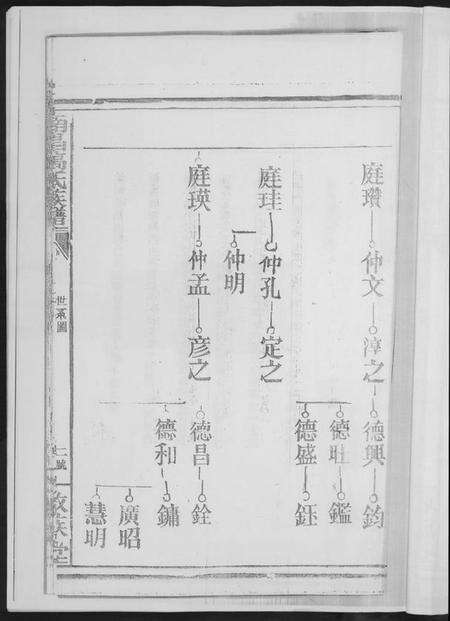 庭瓚 仲文 淳之 德興 鈞
德旺 鑑
德盛 鈺
庭珪 仲孔 定之
仲明
庭瑛 仲孟 彦之 德昌 銓
德和 鏞
廣昭
慧明
南昌高氏族譜
世系圖
敬葆堂